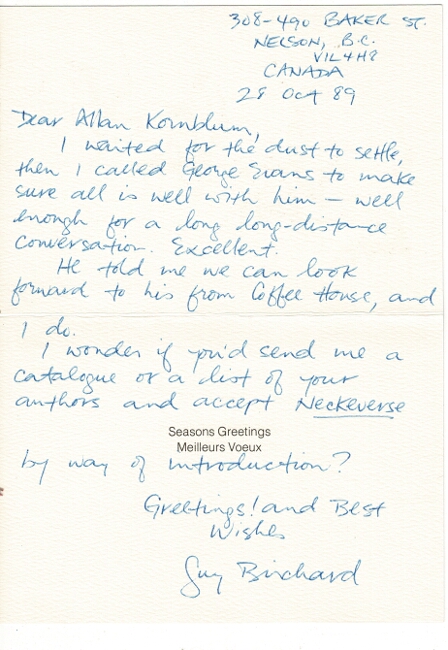 308-490 BAKER ST.
NELSON, B.C.
V1L4H8
CANADA
28 Oct 89
Dear Allan Kornblum,
I waited for the dust to settle,
then I called George Evans to make
sure all is well with him – well
enough for a long long-distance
conversation. Excellent.
He told me we can look
forward to his from Coffee House, and
I do.
I wonder if you'd send me a
catalogue or a list of your
authors and accept Neckeverse
Seasons Greetings
Meilleurs Voeux
by way of introduction?
Greetings! and Best
Wishes
Guy Birchard